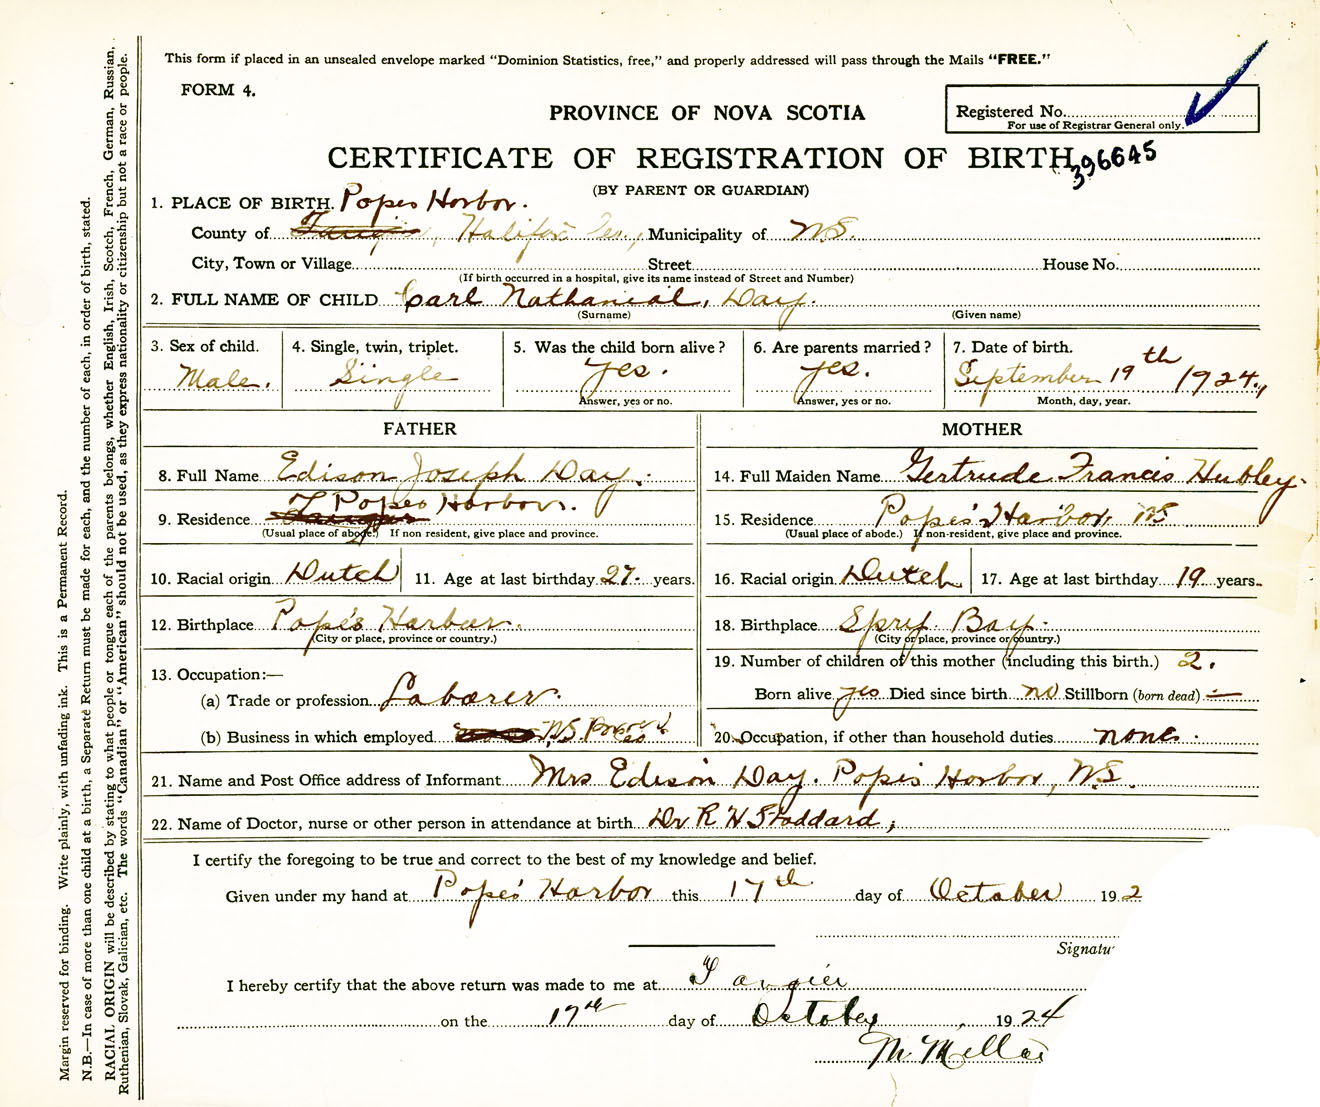 This form if placed in an unsealed envelope marked "Dominion Statistics, free," and properly addressed will pass through the Mails "FREE."
FORM 4.
PROVINCE OF NOVA SCOTIA
Registered No.
For use of Registrar General only.
CERTIFICATE OF REGISTRATION OF BIRTH
396645
(BY PARENT OR GUARDIAN)
1. PLACE OF BIRTH. Popes Harbor.
County of Tangier, Halifax Co., Municipality of N.S.
City, Town or Village Street House No.
(If birth occurred in a hospital, give its name instead of Street and Number)
2. FULL NAME OF CHILD Carl Nathanial, Day.
(Surname) (Given name)
3. Sex of child. 4. Single, twin, triplet. 5. Was the child born alive? 6. Are parents married? 7. Date of birth.
Male. Single yes. yes. September 19th 1924.
Answer, yes or no. Answer, yes or no. Month, day, year.
FATHER MOTHER
8. Full Name Edison Joseph Day. 14. Full Maiden Name Gertrude Francis Hubley.
9. Residence Tangier Popes Harbor. 15. Residence Pope's Harbor NS
(Usual place of abode.) If non resident, give place and province. (Usual place of abode.) If non-resident, give place and province.
10. Racial origin Dutch 11. Age at last birthday 27. years. 16. Racial origin Dutch 17. Age at last birthday 19 years.
12. Birthplace Pope's Harbor. 18. Birthplace Spry Bay.
(City or place, province or country.) (City or place, province or country.)
13. Occupation:— 19. Number of children of this mother (including this birth.) 2.
(a) Trade or profession Laborer. Born alive yes Died since birth no Stillborn (born dead) —
(b) Business in which employed N.S. Power Co 20. Occupation, if other than household duties none.
21. Name and Post Office address of Informant Mrs Edison Day. Popes Harbor, N.S.
22. Name of Doctor, nurse or other person in attendance at birth Dr R H Stoddard,
I certify the foregoing to be true and correct to the best of my knowledge and belief.
Given under my hand at Pope's Harbor this 17th day of October 192
Signatu
I hereby certify that the above return was made to me at Tangier
on the 17th day of October, 1924
M
Margin reserved for binding. Write plainly, with unfading ink. This is a Permanent Record.
N.B.—In case of more than one child at a birth, a Separate Return must be made for each, and the number of each, in order of birth, stated.
RACIAL ORIGIN will be described by stating to what people or tongue each of the parents belongs, whether English, Irish, Scotch, French, German, Russian,
Ruthenian, Slovak, Galician, etc. The words "Canadian" or "American" should not be used, as they express nationality or citizenship but not a race or people.